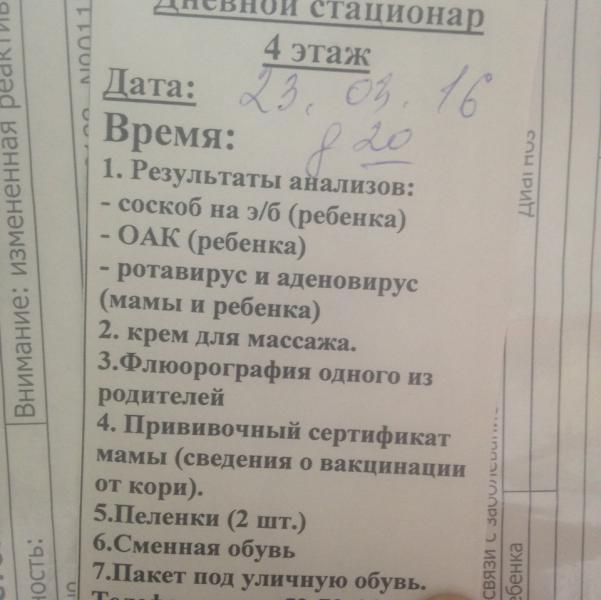 Дневной стационар
4 этаж
Дата: 23.03.16
Время: 8 20
1. Результаты анализов:
- соскоб на э/б (ребенка)
- ОАК (ребенка)
- ротавирус и аденовирус
(мамы и ребенка)
2. крем для массажа.
3.Флюорография одного из
родителей
4. Прививочный сертификат
мамы (сведения о вакцинации
от кори).
5.Пеленки (2 шт.)
6.Сменная обувь
7.Пакет под уличную обувь.
Внимание: измененная
ность:
Диагноз
связи с
ебенка